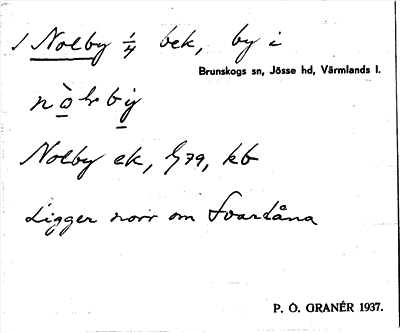 1 Nolby 1/4 bek, by i
Brunskogs sn, Jösse hd, Värmlands l.
Nolby ek, G79, kb
Ligger norr om Svartåna
P. O. GRANÉR 1937.